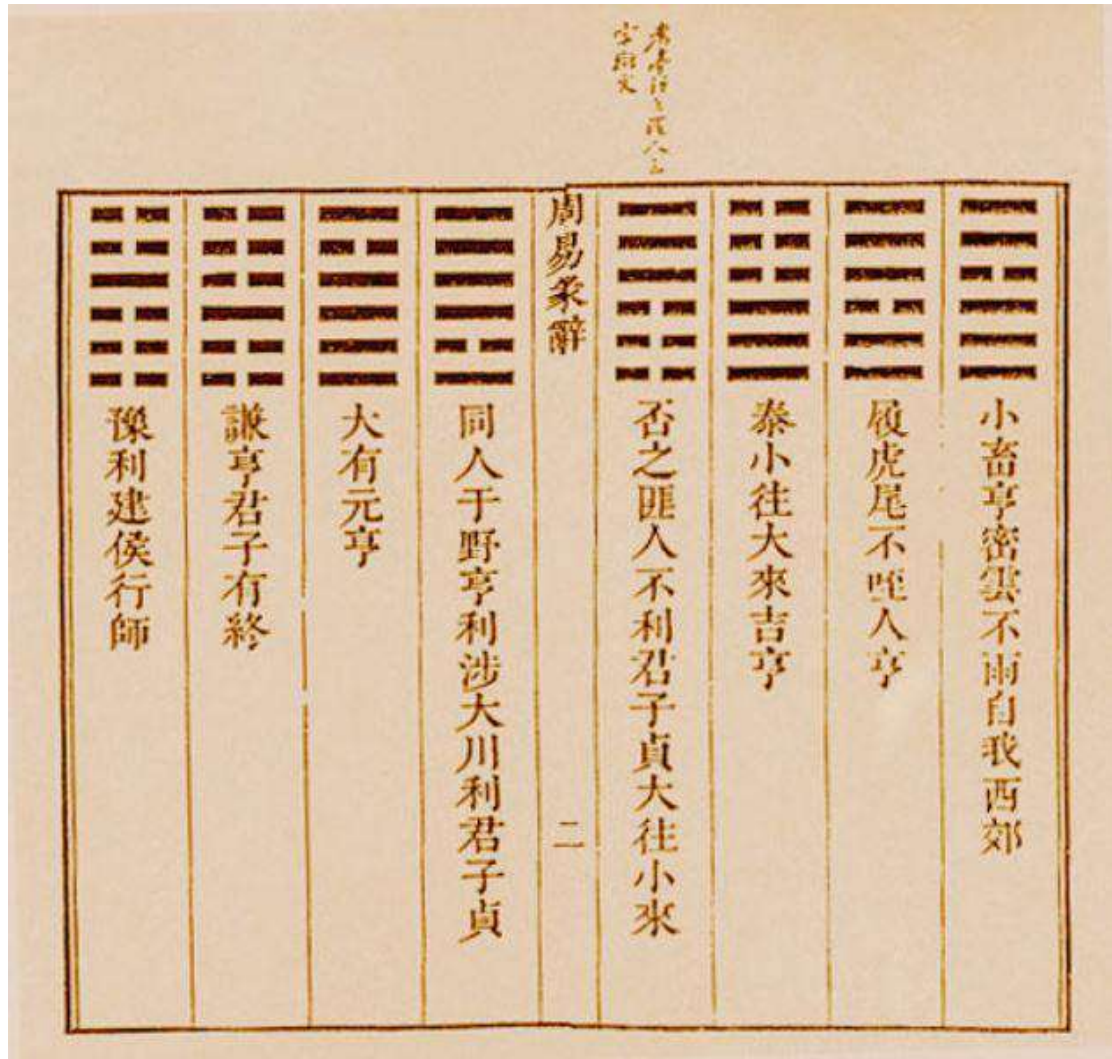 小畜亨密雲不雨自我西郊
履虎尾不咥人亨
泰小往大來吉亨
否之匪人不利君子貞大往小來
周易彖辭
二
同人于野亨利涉大川利君子貞
大有元亨
謙亨君子有終
豫利建侯行師